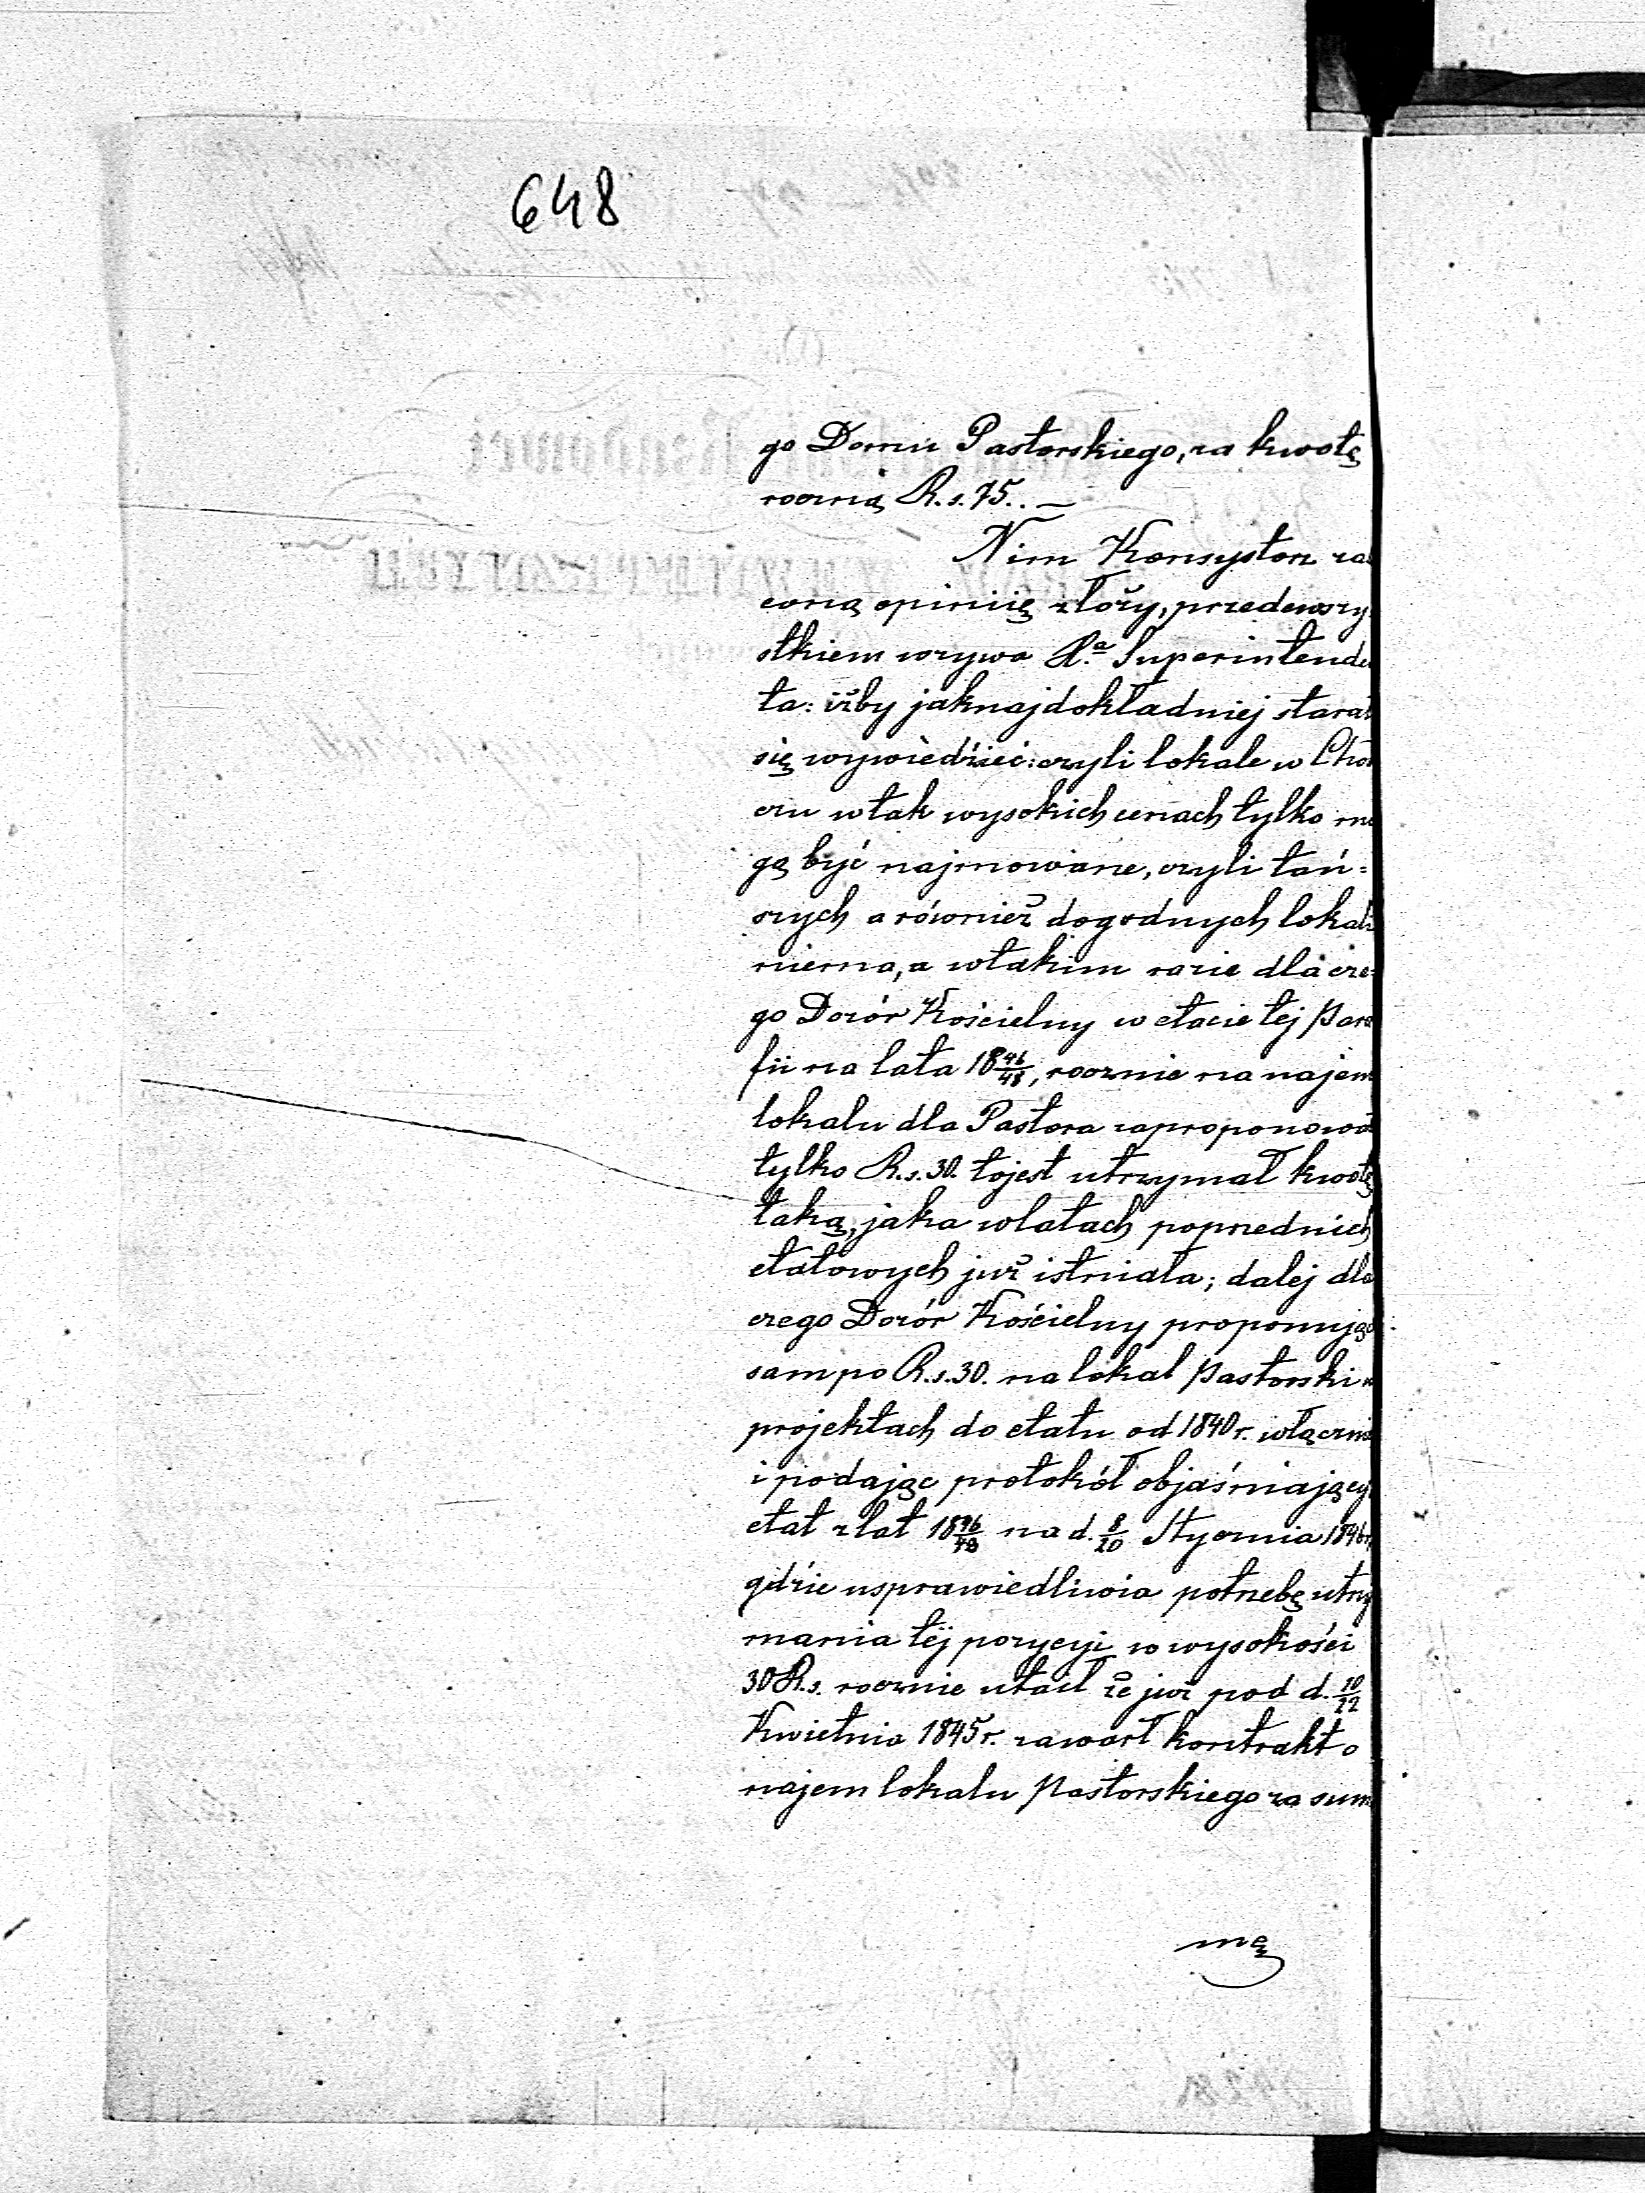 648
go Domu Pastorskiego, za kwotę
roczną R.s. 75. . —
Nim Konsystorz ża
coną opiniię złoży, przedewszy
stkiem wzywa X.ª Superintende
ta: iżby jaknajdokładniej starał
się wywiedźieć: czyli lokale w Cho
czu wtak wysokich cenach tylko mo
gą być najmowane, czyli tań=
szych a również dogodnych lokali
niema, a wtakim razie dla cze=
go Dozór Kościelny w etacie tej para
fii na lata 18 46/48, rocznie na najem
lokalu dla Pastora zaproponował
tylko R.s. 30. tojest utrzymał kwotę
taką, jaka wlatach poprzednich
etatowych już istniała; dalej dla
czego Dozór Kościelny proponując
sam po R.s. 30. na lokal pastorski w
projektach do etatu od 1840 r. włącznie
i podając protokół objaśniający
etat z lat 18 46/48 na d. 8/20 Stycznia 1846 r.
gdźie usprawiedliwia potrzebę utrzy
mania téj pozycyi w wysokości
30 R.s. rocznie utaił że już pod d. 10/22
Kwietnia 1845 r. zawarł kontrakt o
najem lokalu pastorskiego za sum
mę